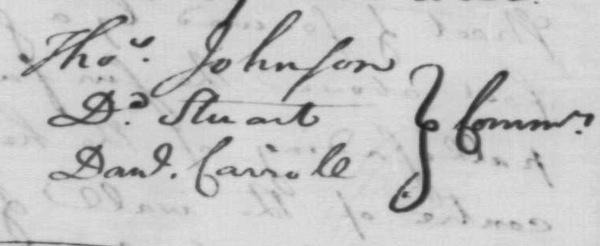 Thos. Johnson
Dd. Stuart } Commrs.
Danl. Carroll